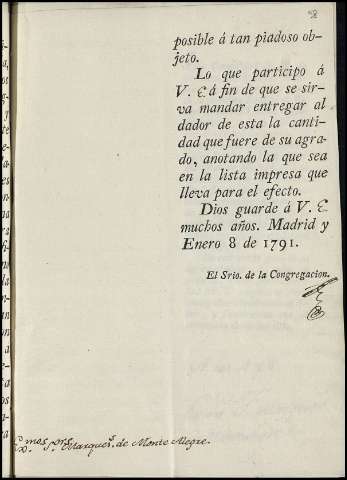 98
posible á tan piadoso ob-
jeto.
Lo que participo á
V. E á fin de que se sir-
va mandar entregar al
dador de esta la canti-
dad que fuere de su agra-
do, anotando la que sea
en la lista impresa que
lleva para el efecto.
Dios guarde á V. E
muchos años. Madrid y
Enero 8 de 1791.
El Srio. de la Congregacion.
Exmos. Sors. Marques.s de Monte Alegre.